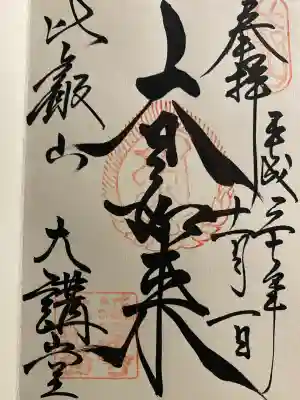 奉拝
平成三十年
十一月一日
大日如来
比叡山
大講堂